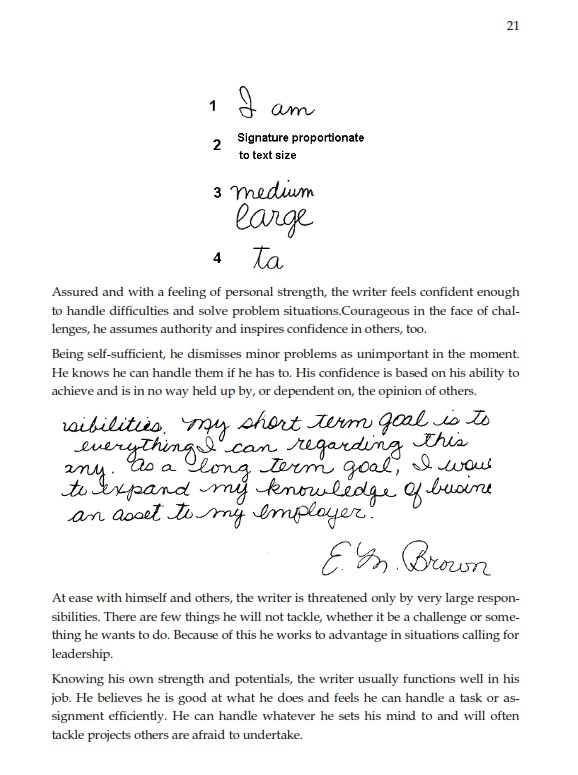 21
1 I am
2 Signature proportionate
to text size
3 medium
large
4 ta
Assured and with a feeling of personal strength, the writer feels confident enough
to handle difficulties and solve problem situations.Courageous in the face of chal-
lenges, he assumes authority and inspires confidence in others, too.
Being self-sufficient, he dismisses minor problems as unimportant in the moment.
He knows he can handle them if he has to. His confidence is based on his ability to
achieve and is in no way held up by, or dependent on, the opinion of others.
nsibilities. My short term goal is to
everything I can regarding this
any. As a long term goal, I woul
to expand my knowledge of busine
an asset to my employer.
E. M. Brown
At ease with himself and others, the writer is threatened only by very large respon-
sibilities. There are few things he will not tackle, whether it be a challenge or some-
thing he wants to do. Because of this he works to advantage in situations calling for
leadership.
Knowing his own strength and potentials, the writer usually functions well in his
job. He believes he is good at what he does and feels he can handle a task or as-
signment efficiently. He can handle whatever he sets his mind to and will often
tackle projects others are afraid to undertake.